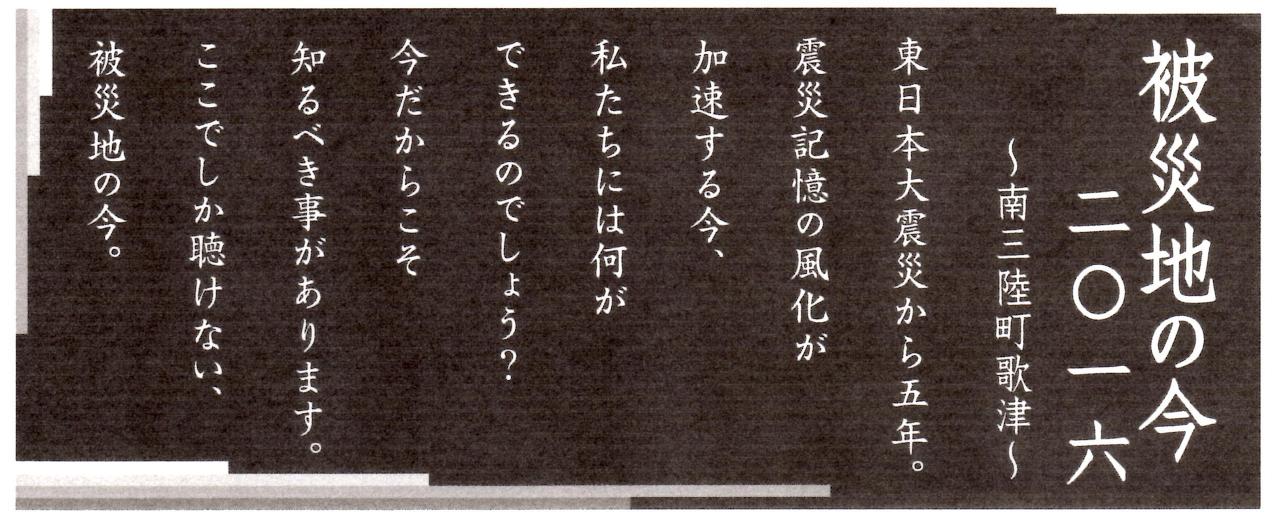 被災地の今
二〇一六
～南三陸町歌津～
東日本大震災から五年。
震災記憶の風化が
加速する今、
私たちには何が
できるのでしょう？
今だからこそ
知るべき事があります。
ここでしか聴けない、
被災地の今。